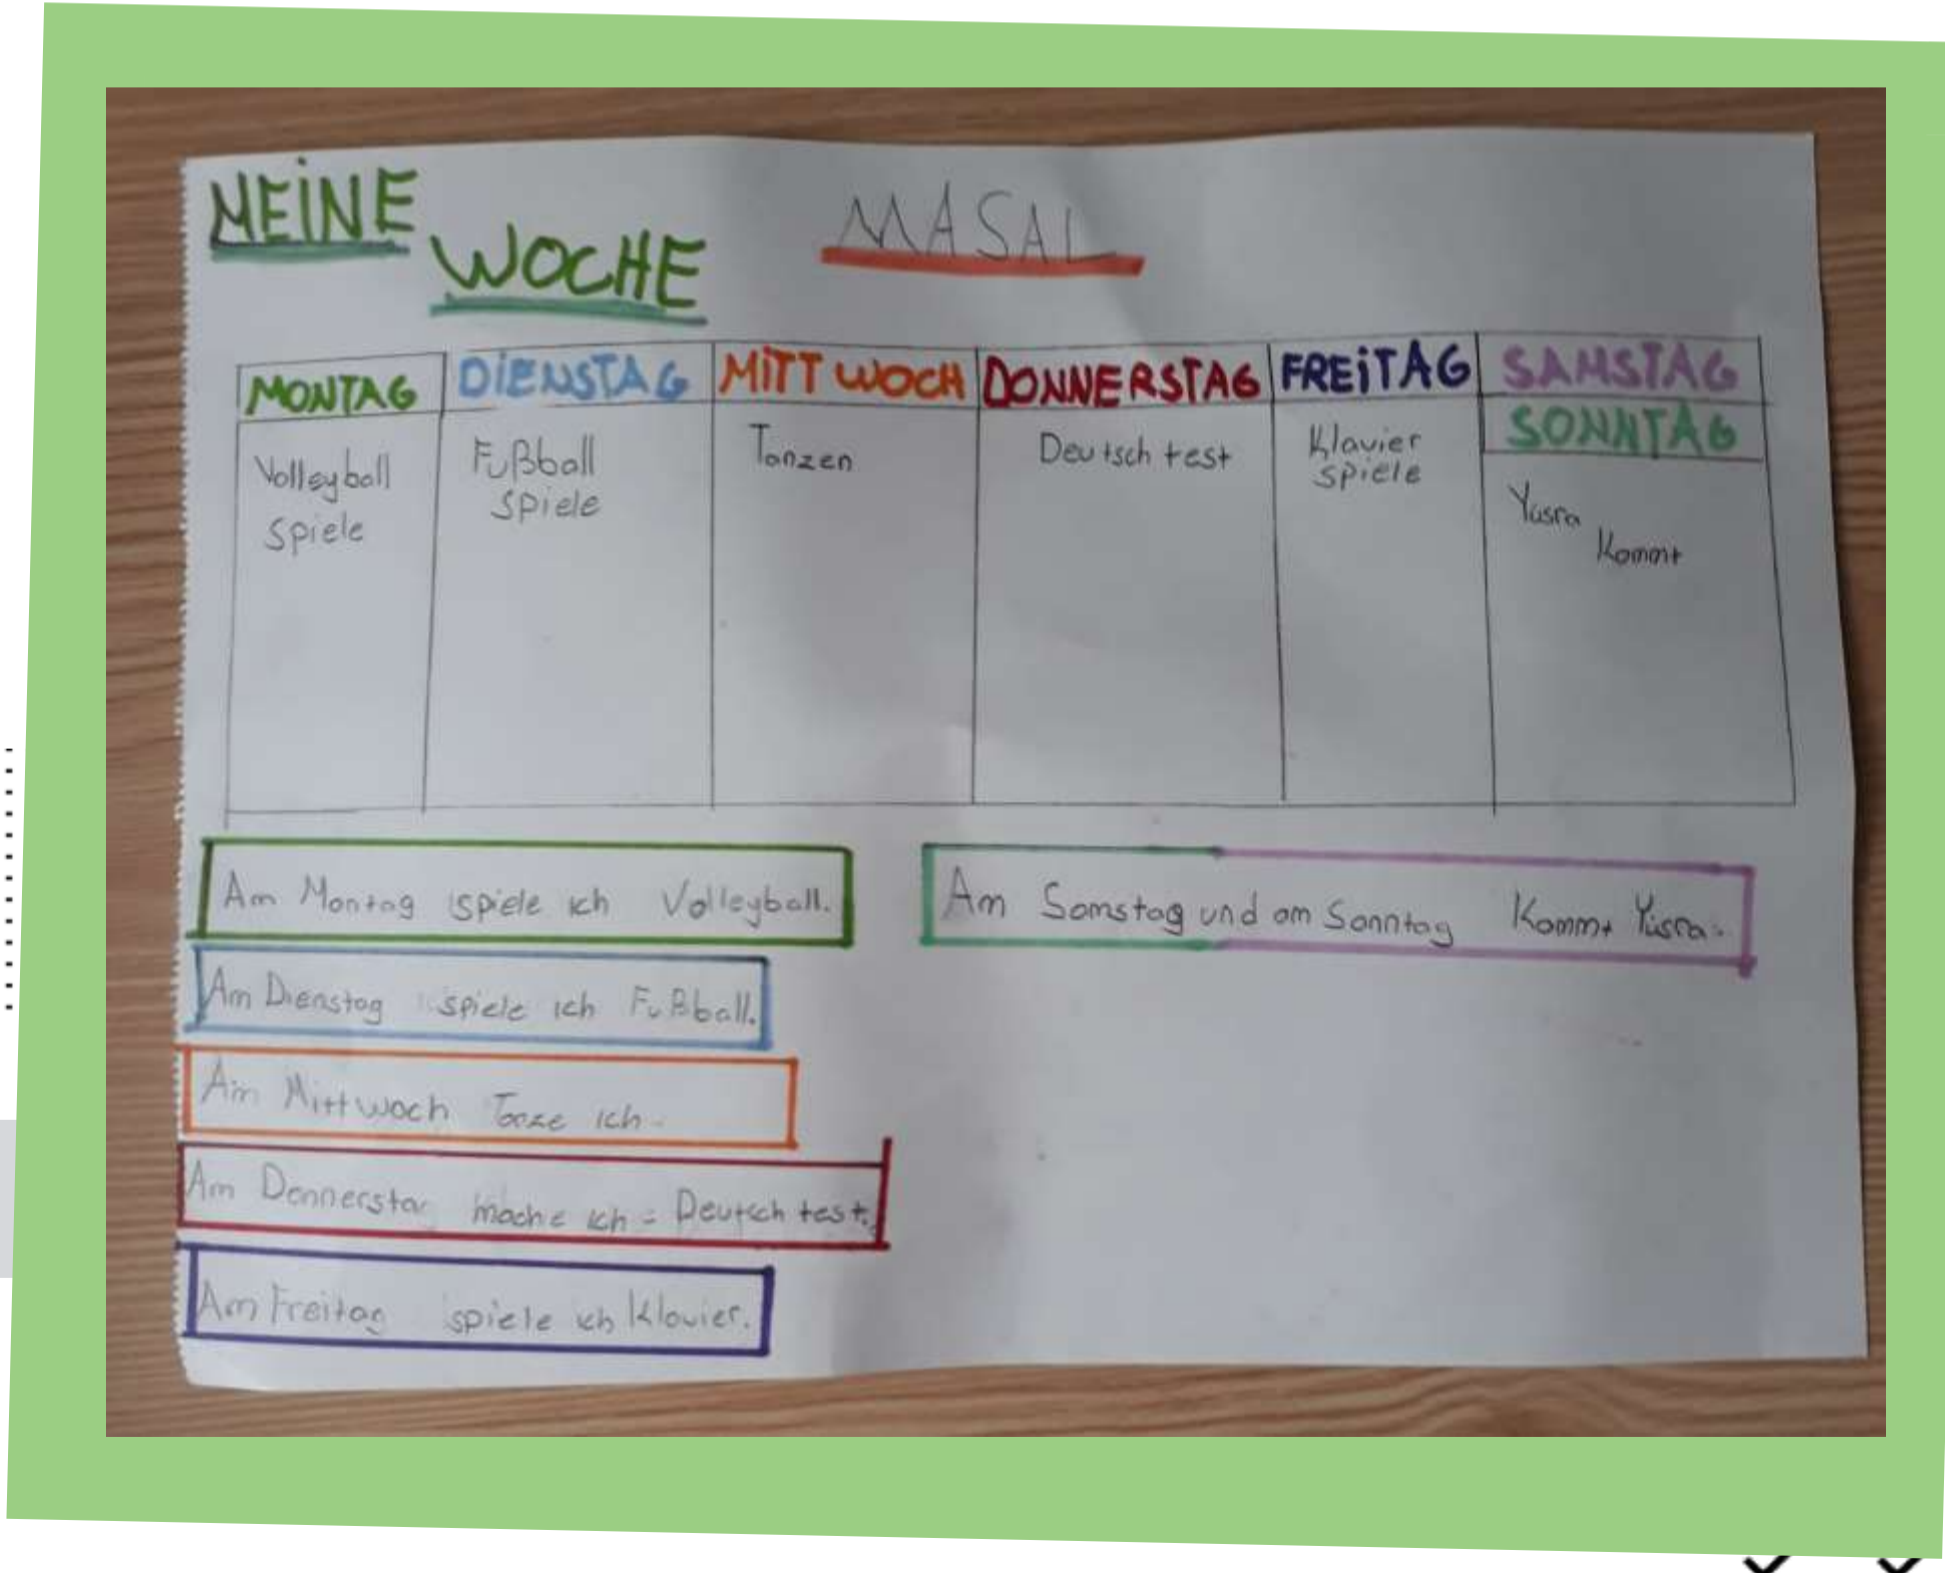 MEINE
WOCHE
MASAL
MONTAG
DIENSTAG
MITTWOCH
DONNERSTAG
FREITAG
SAMSTAG
SONNTAG
Volleyball
spiele
Fußball
spiele
Tanzen
Deutsch test
Klavier
spiele
Yüsra
Kommt
Am Montag spiele ich Volleyball.
Am Dienstag spiele ich Fußball.
Am Mittwoch Tanze ich.
Am Donnerstag mache ich Deutsch test.
Am Freitag spiele ich Klavier.
Am Samstag und am Sonntag Kommt Yüsra.